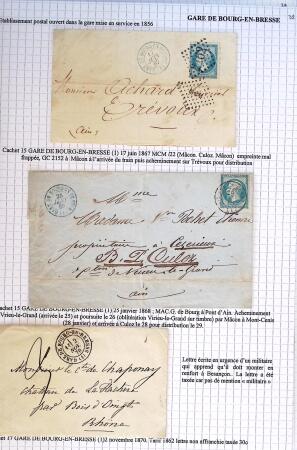 GARE DE BOURG-EN-BRESSE
Etablissement postal ouvert dans la gare mise en service en 1856
Monsieur Achard
Trévoux
Ain
Cachet 15 GARE DE BOURG-EN-BRESSE (1) 17 juin 1867 MCM /22 (Mâcon. Culoz. Mâcon) empreinte mal
frappée, GC 2152 à Mâcon à l'arrivée du train puis acheminement sur Trévoux pour distribution
Madame
propriétaire à
B. D. Culoz
ain
Cachet 15 GARE DE BOURG-EN-BRESSE (1) 25 janvier 1868 ; MAC.G. de Bourg à Pont d'Ain. Acheminement
Virieu-le-Grand (arrivée le 25) et poursuite le 26 (oblitération Virieu-le-Grand sur timbre) par Mâcon à Mont-Cenis
(28 janvier) et arrivée à Culoz le 28 pour distribution le 29.
Monsieur le Cte de Chaponay
château de La
par Bois d'Oingt
Rhône
Lettre écrite en urgence d'un militaire
qui apprend qu'il doit monter en
renfort à Besançon. La lettre a été
taxée car pas de mention « militaire »
Cachet 17 GARE DE BOURG-EN-BRESSE (1)2 novembre 1870. Tarif 1862 lettre non affranchie taxée 30c